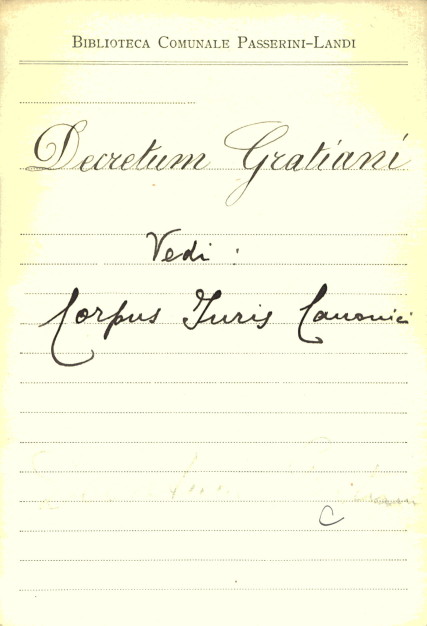 BIBLIOTECA COMUNALE PASSERINI-LANDI
Decretum Gratiani
Vedi :
Corpus Iuris Canonici
C